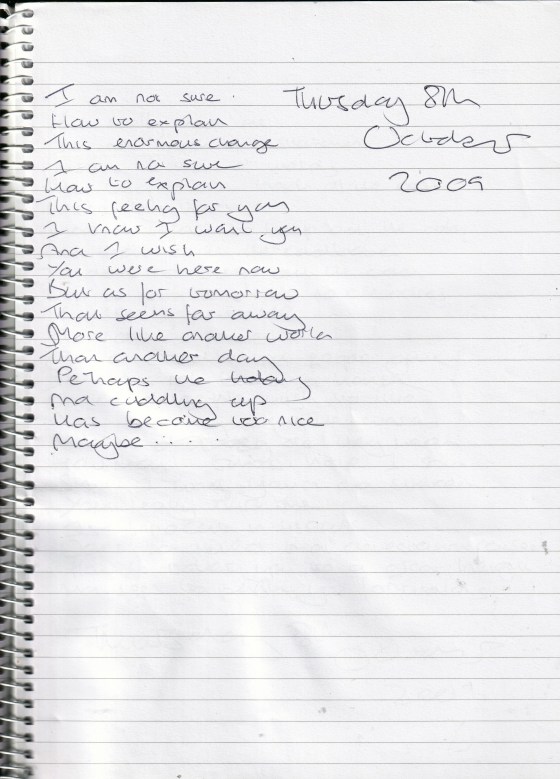 I am not sure.
Thursday 8th
How to explain
October
This enormous change
I am not sure
How to explain
2009
This feeling for you
I know I want you
And I wish
You were here now
But as for tomorrow
That seems far away
More like another world
Than another day
Perhaps the holding
And cuddling up
Has become too nice
Maybe.....